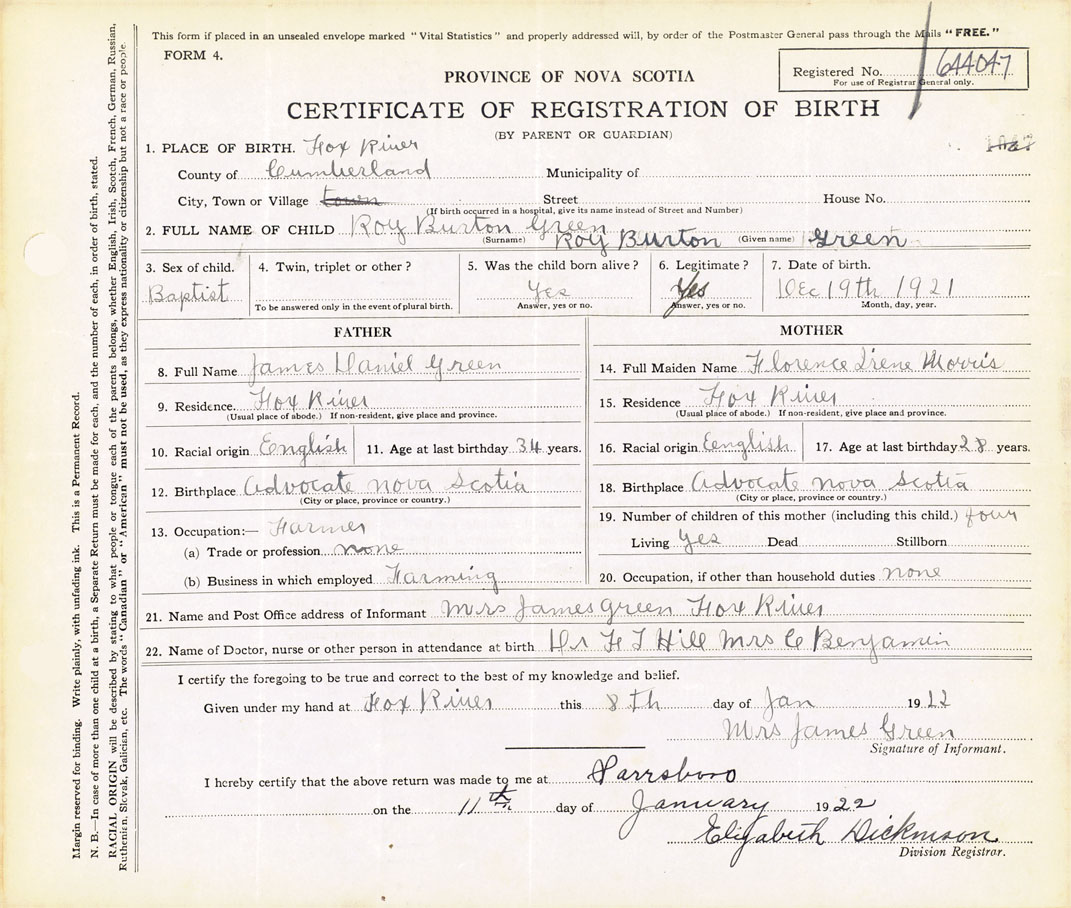 This form if placed in an unsealed envelope marked "Vital Statistics" and properly addressed will, by order of the Postmaster General pass through the Mails "FREE."
FORM 4.
PROVINCE OF NOVA SCOTIA
Registered No. 644047
For use of Registrar General only.
CERTIFICATE OF REGISTRATION OF BIRTH
(BY PARENT OR GUARDIAN)
1. PLACE OF BIRTH. Fox River
County of Cumberland Municipality of
City, Town or Village town Street House No.
(If birth occurred in a hospital, give its name instead of Street and Number)
2. FULL NAME OF CHILD Roy Burton Green
(Surname) Roy Burton (Given name) Green
3. Sex of child. 4. Twin, triplet or other? 5. Was the child born alive? 6. Legitimate? 7. Date of birth.
Baptist Yes Yes Dec 19th 1921
To be answered only in the event of plural birth. Answer, yes or no. Answer, yes or no. Month, day, year.
FATHER
8. Full Name James Daniel Green
9. Residence. Fox River
(Usual place of abode.) If non-resident, give place and province.
10. Racial origin English 11. Age at last birthday 34 years.
12. Birthplace Advocate nova Scotia
(City or place, province or country.)
13. Occupation:— Farmer
(a) Trade or profession none
(b) Business in which employed Farming
MOTHER
14. Full Maiden Name Florence Irene Morris
15. Residence Fox River
(Usual place of abode.) If non-resident, give place and province.
16. Racial origin English 17. Age at last birthday 28 years.
18. Birthplace Advocate nova Scotia
(City or place, province or country.)
19. Number of children of this mother (including this child.) four
Living yes Dead Stillborn
20. Occupation, if other than household duties none
21. Name and Post Office address of Informant Mrs James Green Fox River
22. Name of Doctor, nurse or other person in attendance at birth Dr F T Hill Mrs C Benjamin
I certify the foregoing to be true and correct to the best of my knowledge and belief.
Given under my hand at Fox River this 8th day of Jan 1922
Mrs James Green
Signature of Informant.
I hereby certify that the above return was made to me at Parrsboro
on the 11th day of January 1922
Elizabeth Dickinson
Division Registrar.
Margin reserved for binding. Write plainly, with unfading ink. This is a Permanent Record.
N. B.—In case of more than one child at a birth, a Separate Return must be made for each, and the number of each, in order of birth, stated.
RACIAL ORIGIN will be described by stating to what people or tongue each of the parents belongs, whether English, Irish, Scotch, French, German, Russian,
Ruthenien, Slovak, Galician, etc. The words "Canadian" or "American" must not be used, as they express nationality or citizenship but not a race or people.